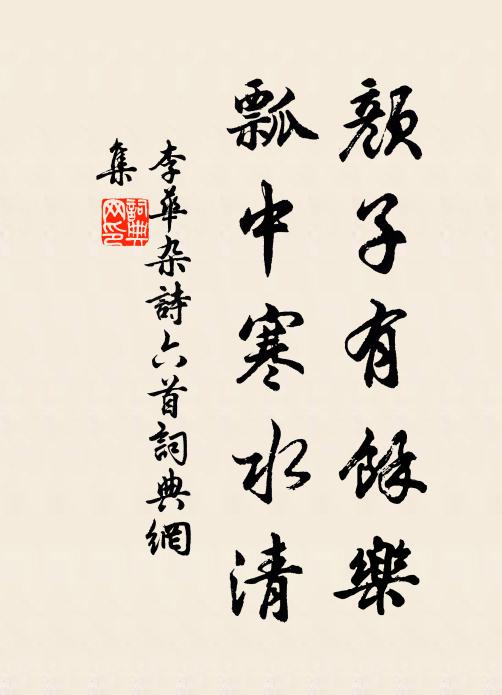 顏子有餘樂
瓢中寒水清
李華杂詩六首詞典網
集
詞典网印